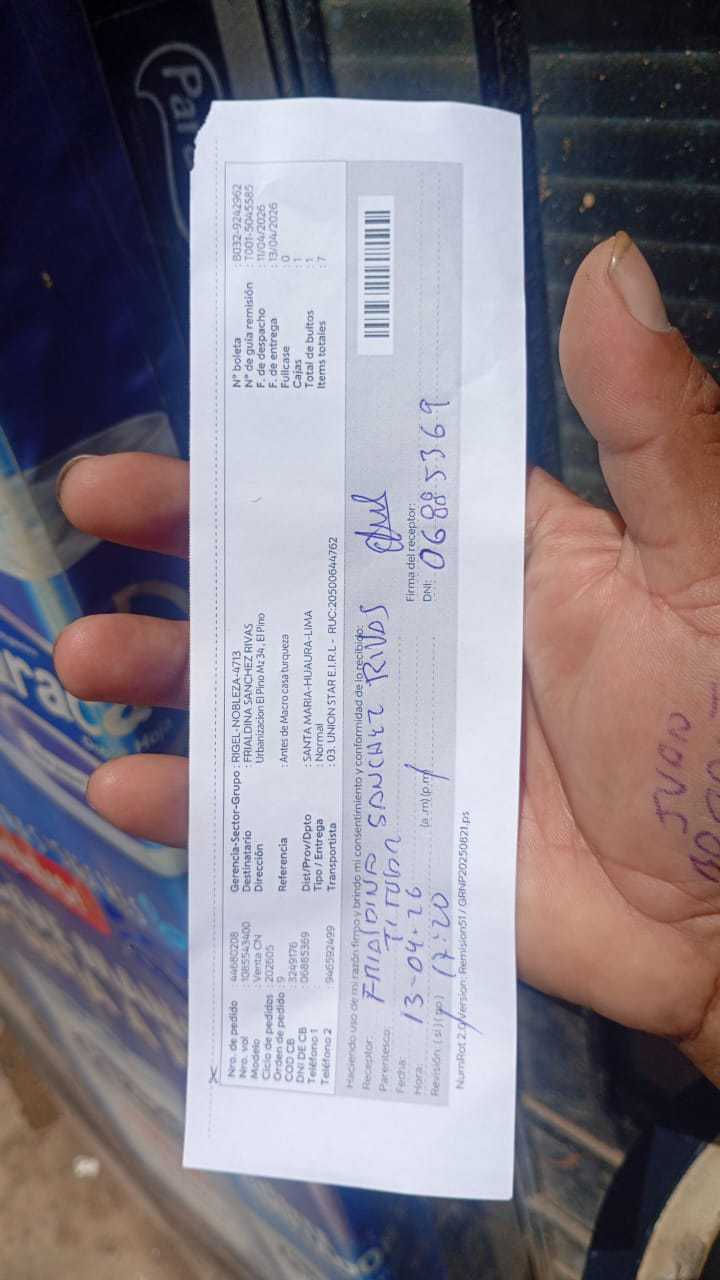 Nro. de pedido : 44680208
Nro. vol : 1085543400
Modelo : Venta CN
Ciclo de pedidos : 202605
Orden de pedido : 9
COD CB : 3249176
DNI DE CB : 06885369
Teléfono 1 :
Teléfono 2 : 946592499
Gerencia-Sector-Grupo : RIGEL-NOBLEZA-4713
Destinatario : FRIALDINA SANCHEZ RIVAS
Dirección : Urbanizacion El Pino Mz 34 , El Pino
Referencia : Antes de Macro casa turqueza
Dist/Prov/Dpto : SANTA MARIA-HUAURA-LIMA
Tipo / Entrega : Normal
Transportista : 03. UNION STAR E.I.R.L - RUC:20500644762
N° boleta : B032-9242962
N° de guía remisión : T001-5045585
F. de despacho : 11/04/2026
F. de entrega : 13/04/2026
Fullcase : 0
Cajas : 1
Total de bultos : 1
Items totales : 7
Haciendo uso de mi razón firmo y brindo mi consentimiento y conformidad de lo recibido:
Receptor: FRIALDINA SANCHEZ RIVAS
Parentesco: TITULAR
Fecha: 13-04-26
Hora: 17:20 (a.m) (p.m)
Revisión: (si) (no)
Firma del receptor:
DNI: 06885369
NumRot 2.0/Version: Remision51 / GRNP20250821.ps
JUAN
Par